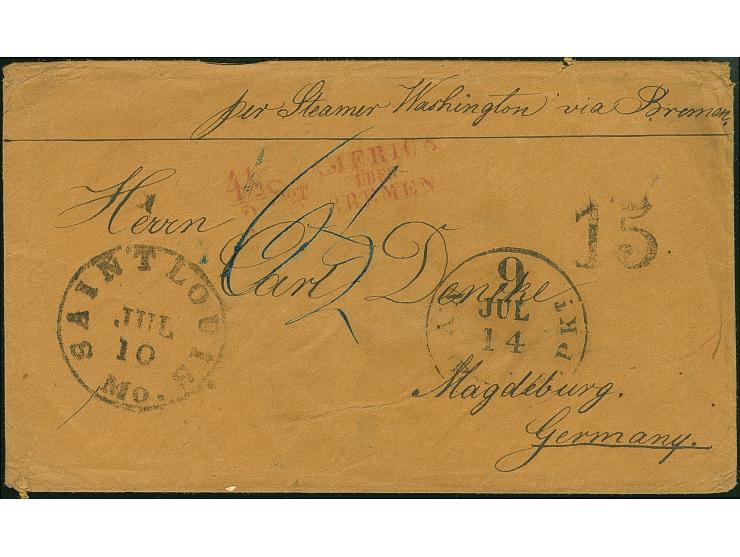 per Steamer Washington via Bremen,
AMERICA
ÜBER
BREMEN
Herrn
Carl Denike
15
SAINT LOUIS
JUL
10
Mo.
9
JUL
14
PKT
Magdeburg.
Germany.